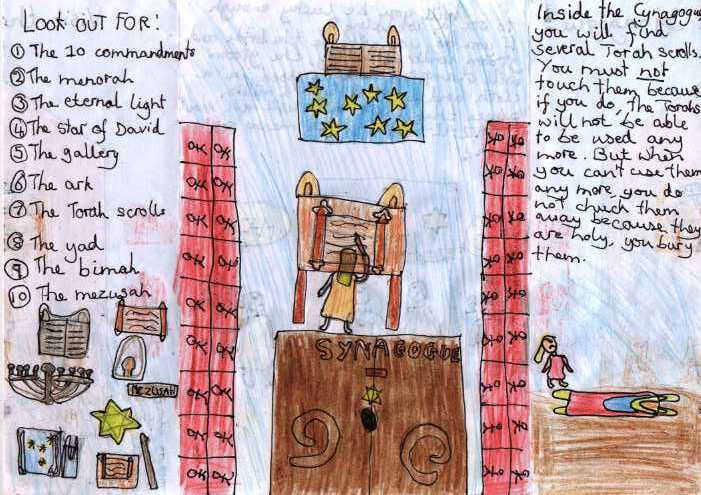 LOOK OUT FOR!
① The 10 commandments
② The menorah
③ The eternal light
④ The star of David
⑤ The gallery
⑥ The ark
⑦ The Torah scrolls
⑧ The yad
⑨ The bimah
⑩ The mezusah
MEZUSAH
SYNAGOGUE
Inside the Cynagogue
you will find
several Torah scrolls.
You must not
touch them because
if you do, the Torahs
will not be able
to be used any
more. But when
you can't use them
any more, you do
not chuch them
away because they
are holy, you bury
them.